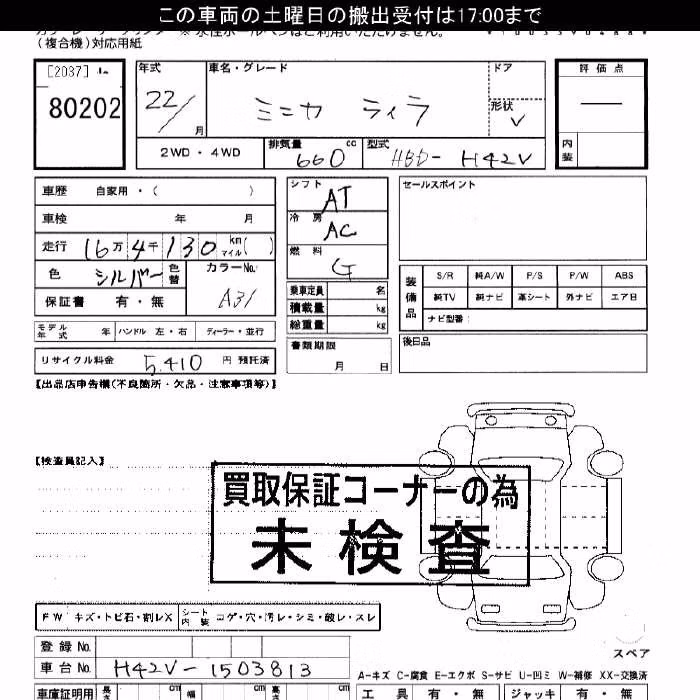 この車両の土曜日の搬出受付は17:00まで
(複合機)対応用紙
[2037]
80202
年式 22/ 月
車名・グレード ミニカ ライラ
ドア
形状 V
評価点
内装
2WD・4WD
排気量 660 cc
型式 HBD-H42V
車歴 自家用・( )
車検 年 月
走行 16万4千130 km マイル( )
色 シルバー 色替
カラーNo. A31
保証書 有・無
シフト AT
冷房 AC
燃料 G
乗車定員 名
積載量 kg
総重量 kg
書類期限 月 日
セールスポイント
装備品
S/R 純A/W P/S P/W ABS
純TV 純ナビ 革シート 外ナビ エア日
ナビ型番:
後日品
モデル年式 年 ハンドル 左・右 ディーラー・並行
リサイクル料金 5,410 円 預託済
【出品店申告欄(不良箇所・欠品・注意事項等)】
【検査員記入】
買取保証コーナーの為
未検査
FW キズ・トビ石・割レX シート内装 コゲ・穴・汚レ・シミ・敵レ・スレ
登録No.
車台No. H42V-1503813
スペア
A-キズ C-腐食 E-エクボ S-サビ U-凹ミ W-補修 XX-交換済
車庫証明用 長さ cm 幅 cm 高さ cm
工具 有・無 ジャッキ 有・無